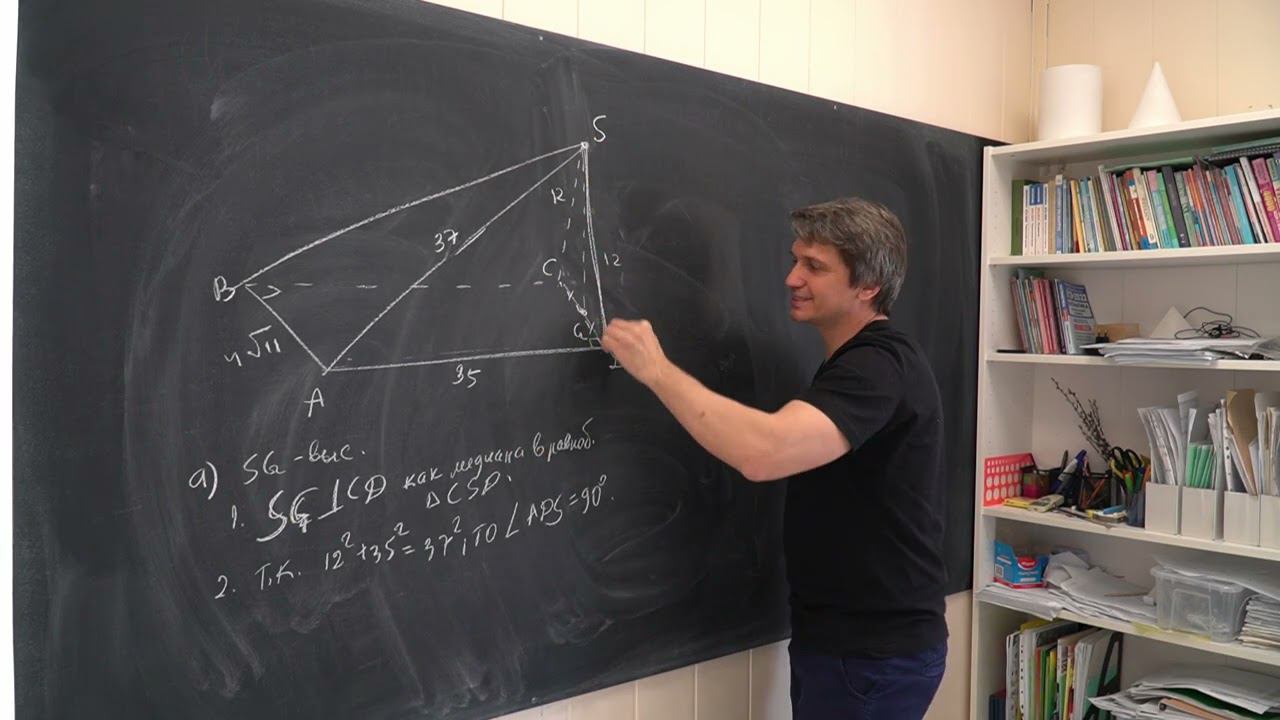 S
12
37
12
C
B
G
4√11
35
A
а) SG - выс.
1. SG ⊥ CD как медиана в равноб.
△CSD.
2. Т.к. 12² + 35² = 37², то ∠ADS = 90°.